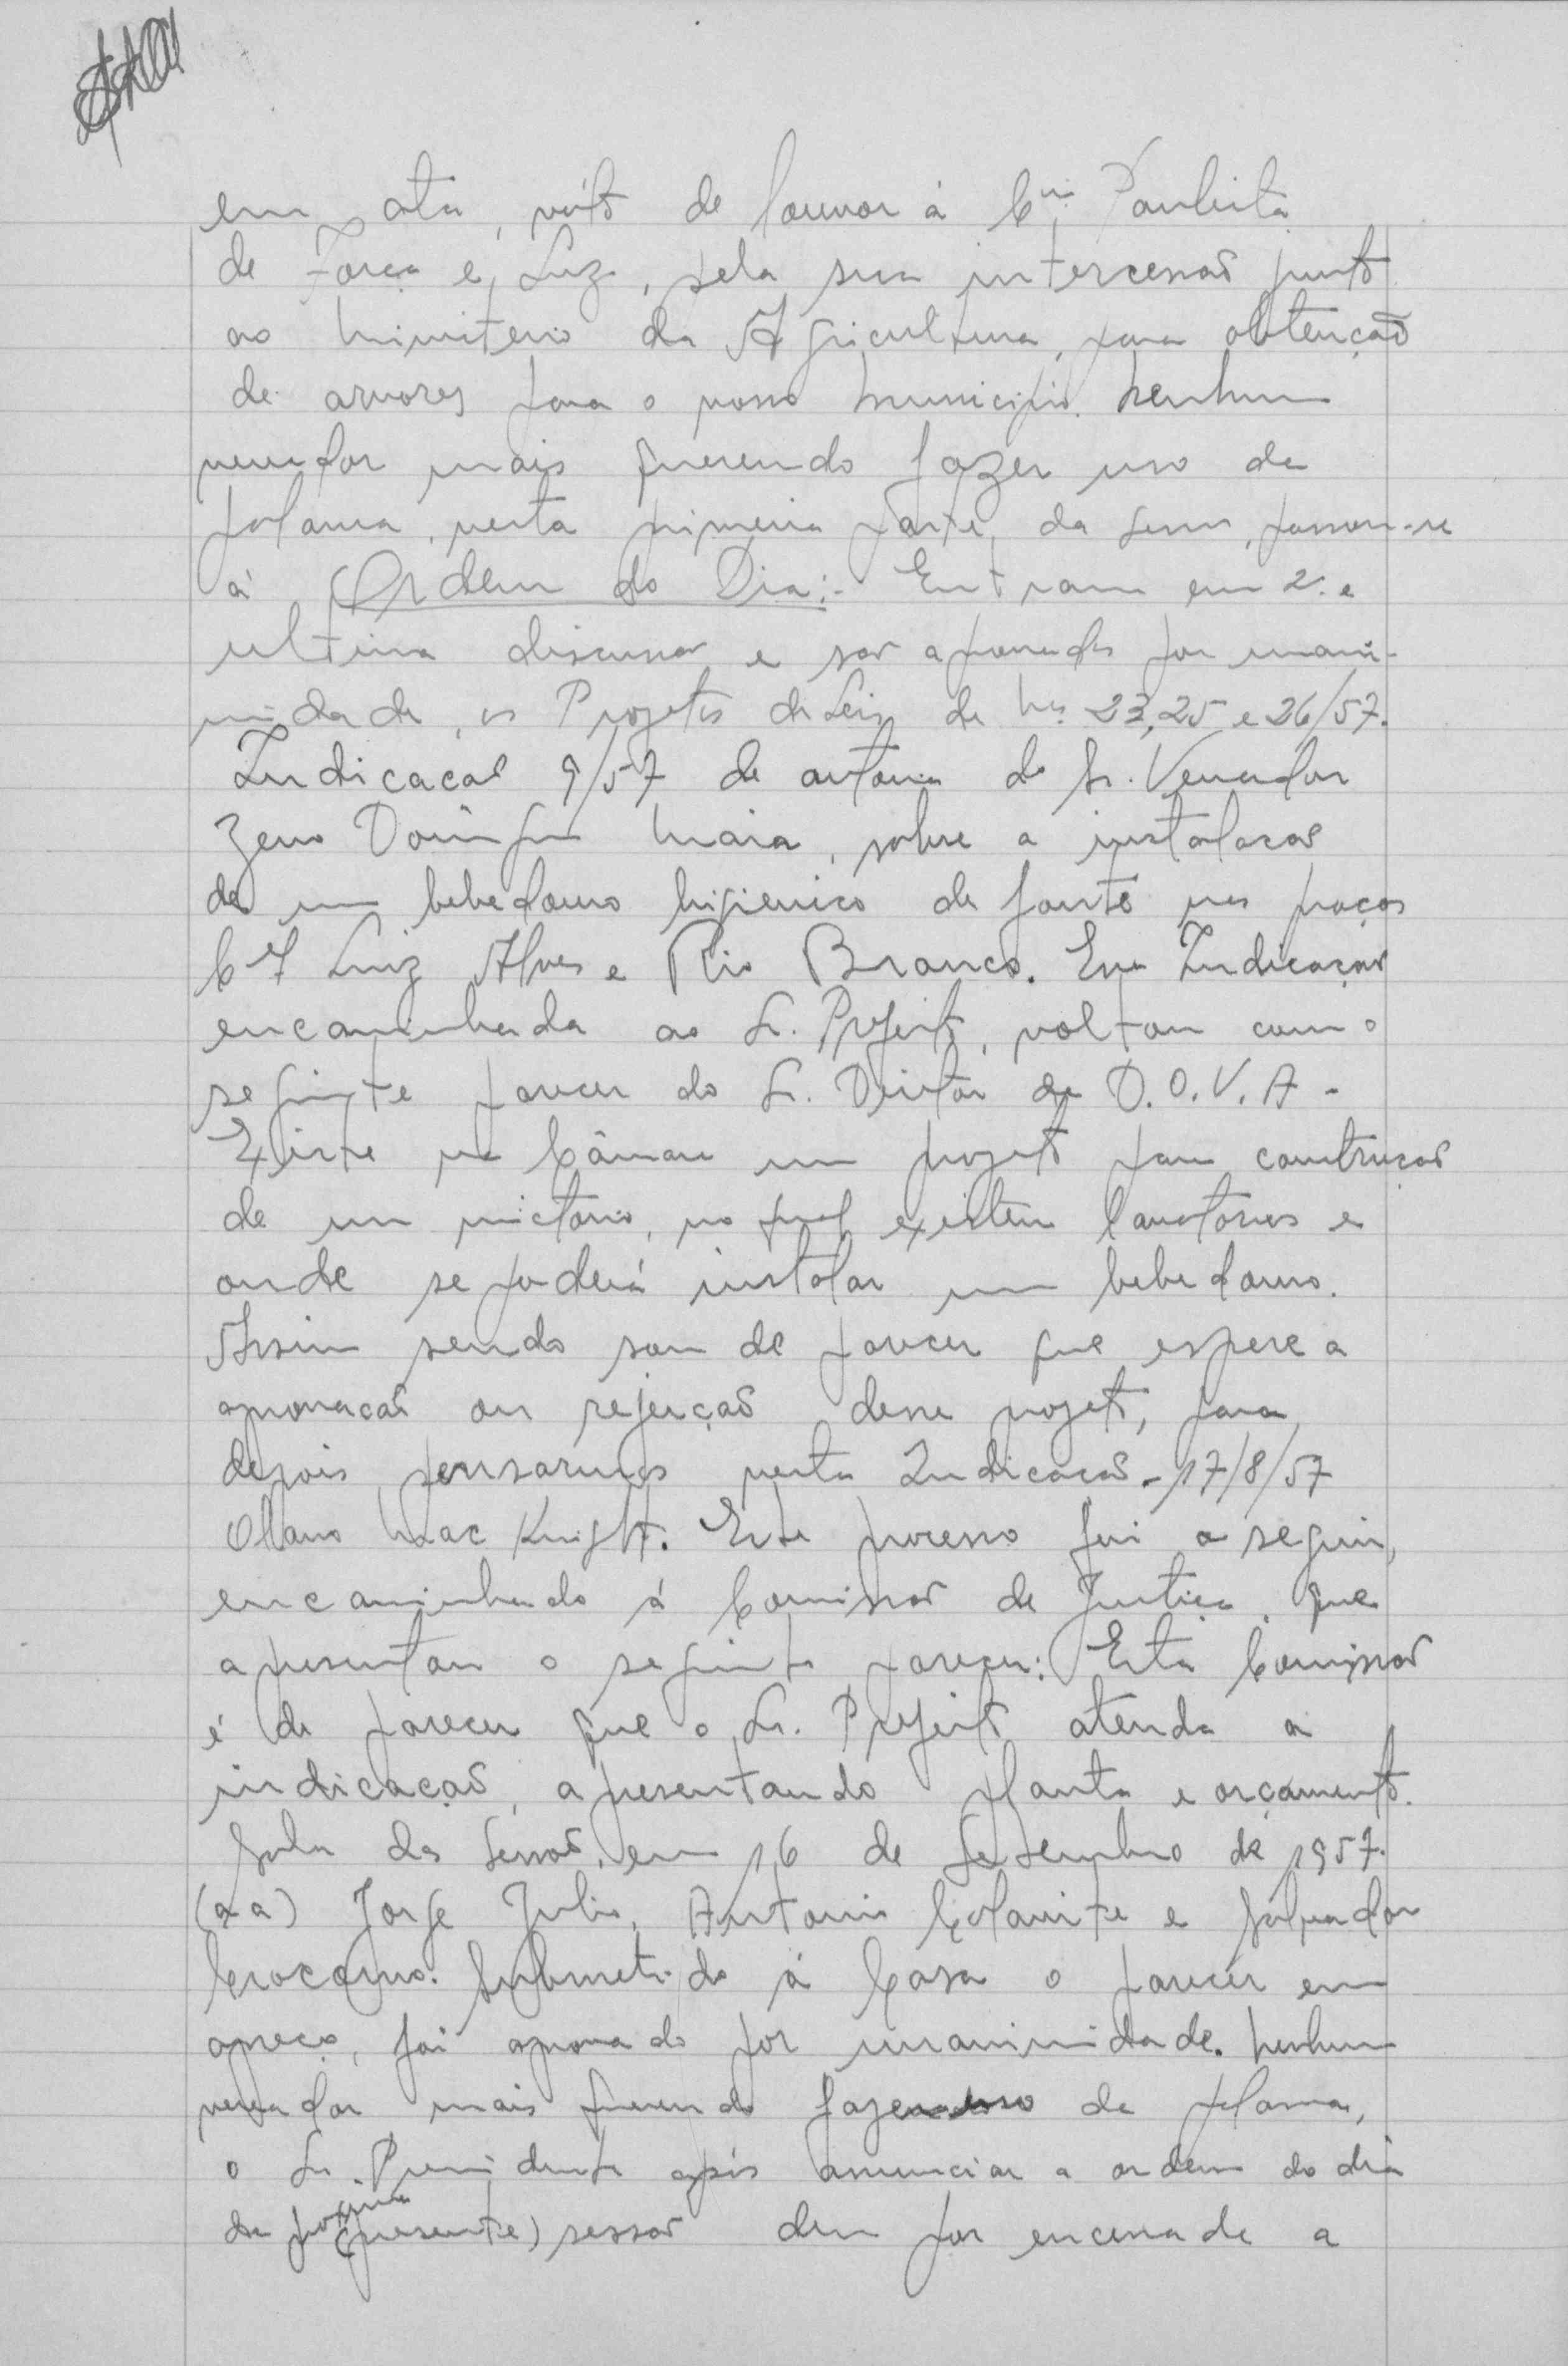 em ata, voto de louvor á Cia Paulista
de Força e Luz, pela sua intercessão junto
ao Ministerio da Agricultura, para obtenção
de arvores para o nosso municipio. Nenhum
vereador mais querendo fazer uso da
palavra, nesta primeira parte, da sessão, passou-se
á Ordem do Dia:- Entram em 2ª e
ultima discussão e são aprovados por unani-
midade, os Projetos de Leis de Nos 23, 25 e 26/57.
Indicacão 9/57 de autoria do Sr. Vereador
Zeno Domingues Maia, sobre a instalacão
de um bebedouro higienico de jante nas praças
Cel Luiz Alves e Rio Branco. Essa Indicação
encaminhada ao Sr. Prefeito, voltou com o
seguinte parecer do Sr. Diretor da D.O.V.A -
Existe na Câmara um projeto para construcão
de um mictorio, no qual existem lavatorios e
onde se poderá instalar um bebedouro.
Assim sendo sou de parecer que espere a
aprovacão ou rejeição desse projeto, para
depois pensarmos nesta Indicacão - 17/8/57
Olavo Mac Knight. Este processo foi a seguir,
encaminhado á Comissão de Justiça, que
apresentou o seguinte parecer: Esta Comissão
é de parecer que o Sr. Prefeito atenda a
indicação, apresentando planta e orçamento.
Sala das Sessões, em 16 de Setembro de 1957.
(aa) Jorge Julio, Antonio Colavite e Salvador
Crocomo. Submetido á Casa o parecer em
apreço, foi aprovado por unanimidade. Nenhum
vereador mais querendo fazer uso da palavra,
o Sr. Presidente após anunciar a ordem do dia
da proxima (presente) sessão deu por encerrada a